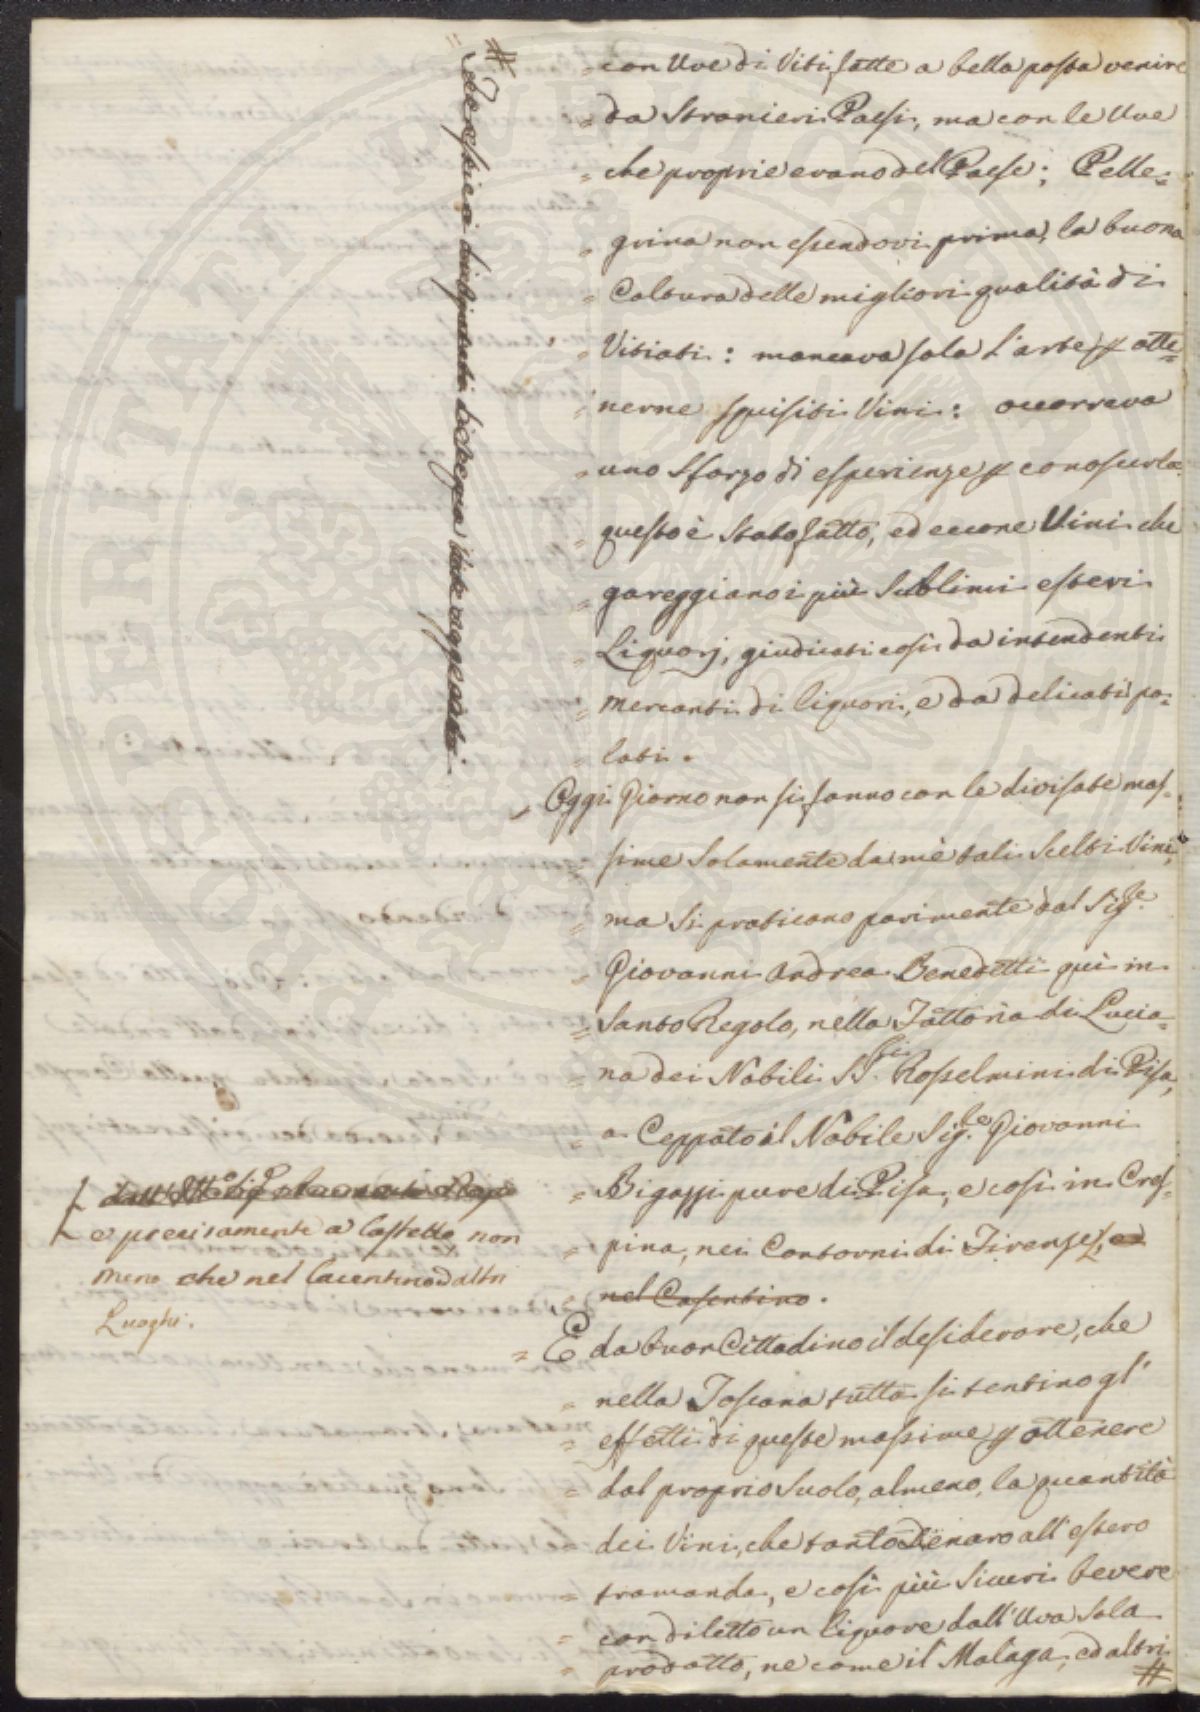 con Uve di Viti fatte a bella posta venire
= da Stranieri Paesi, ma con le Uve
= che proprie erano del Paese; Pelle=
= grina non essendovi prima, la buona
= Coltura delle migliori qualità di
= Vitiati: mancava sola l'arte p otte=
= nerne squisiti Vini: occorreva
= uno Sforzo di esperienze p conoscerla
= questo è Stato fatto, ed eccone Vini che
= gareggiano i più Sublimi esteri
= Liquorj, giudicati così da intendenti
= mercanti di liquori, e da delicati pa=
= lati.
= Oggi Giorno non si fanno con le divisate mas=
= sime Solamente da mè tali Scelti Vini,
= ma Si praticano parimente dal Sig.re
= Giovanni Andrea Benedetti quì in
= Santo Regolo, nella Fattoria di Lucia=
= na dei Nobili SS.ri Rosselmini di Pisa,
= a Ceppato il Nobile Sig.re Giovanni
= Bigazzi pure di Pisa, e così in Cres=
= pina, nei Contorni di Firenze, ed
= nel Casentino.
= E da buon Cittadino il desiderare, che
= nella Toscana tutta si sentino gl'
= effetti di queste massime p ottenere
= dal proprio Suolo, almeno, la quantità
= dei Vini, che tanto Denaro all'estero
= tramanda, e così più Sicuri bevere
= con diletto un liquore dall'Uva Sola
= prodotto, ne come il Malaga, ed altri
#
e precisamente a Castello, non
meno che nel Casentino ed altri
Luoghi.
#